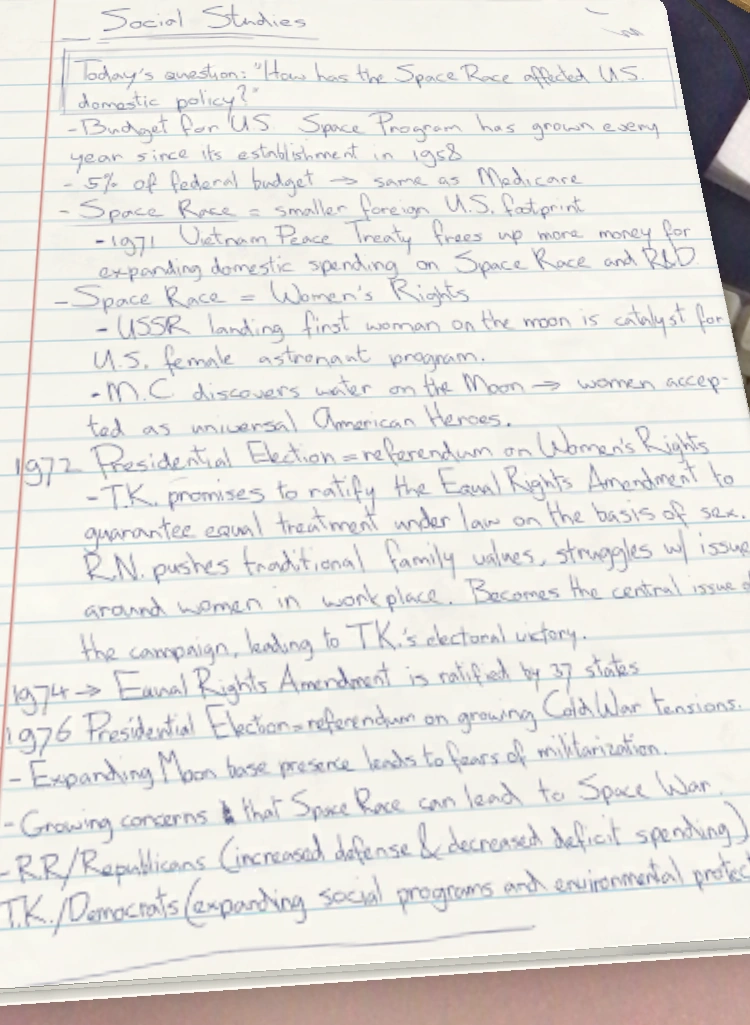 Social Studies
Today's question: "How has the Space Race affected U.S.
domestic policy?"
- Budget for U.S. Space Program has grown every
year since its establishment in 1958
- 5% of federal budget → same as Medicare
- Space Race = smaller foreign U.S. footprint
- 1971 Vietnam Peace Treaty frees up more money for
expanding domestic spending on Space Race and R&D
- Space Race = Women's Rights
- USSR landing first woman on the moon is catalyst for
U.S. female astronaut program.
- M.C discovers water on the Moon → women accep-
ted as universal American Heroes.
1972 Presidential Election = referendum on Women's Rights
- T.K. promises to ratify the Equal Rights Amendment to
guarantee equal treatment under law on the basis of sex.
R.N. pushes traditional family values, struggles w/ issue
around women in workplace. Becomes the central issue o
the campaign, leading to T.K.'s electoral victory.
1974 → Equal Rights Amendment is ratified by 37 states
1976 Presidential Election = referendum on growing Cold War tensions.
- Expanding Moon base presence leads to fears of militarization.
- Growing concerns that Space Race can lead to Space War.
- R.R/Republicans (increased defense & decreased deficit spending)
T.K./Democrats (expanding social programs and environmental protec